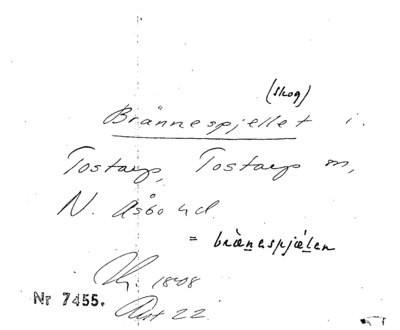 (skog)
Brännespjellet i.
Tostarp, Tostarp sn,
N. Åsbo hd.
= brànespjǽlen
1808
Nr 7455.
Akt 22